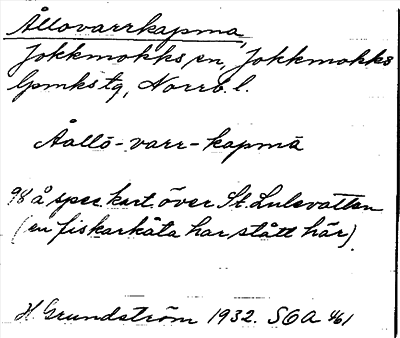 Ållovarrkapma,
Jokkmokks sn, Jokkmokks
lpmks tg, Norrb. l.
Åallō-varr-kapmā
98 å spec. kart. över St. Lulevatten
(en fiskarkåta har stått här).
H. Grundström 1932. SOA 4/61